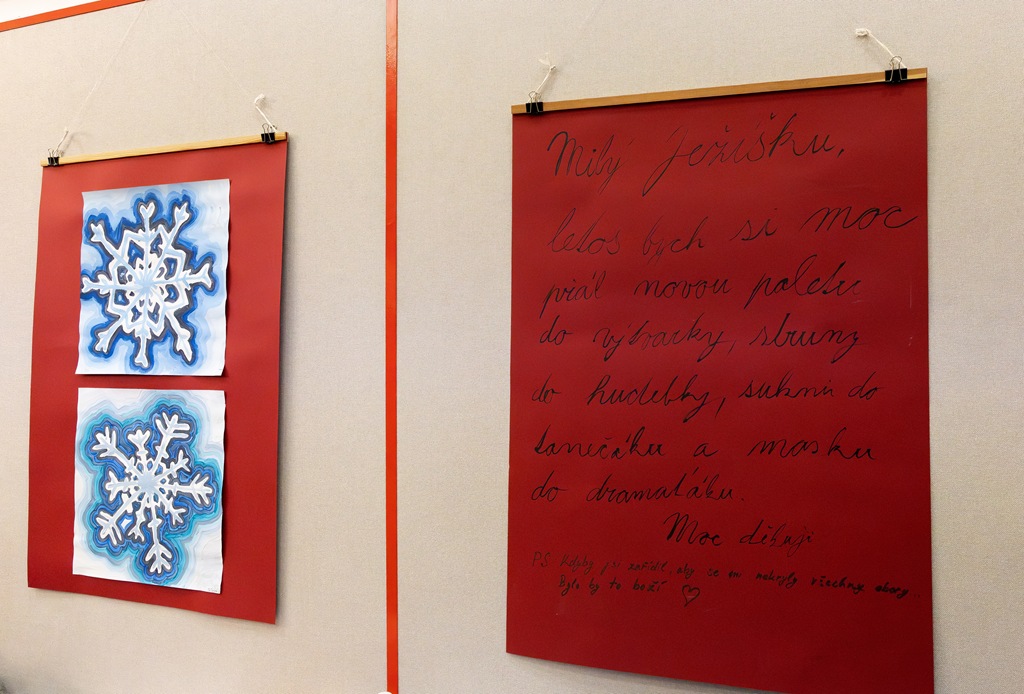 Milý Ježíšku,
letos bych si moc
přál novou paletu
do výtvarky, struny
do hudebky, sukni do
tanečáku a masku
do dramaťáku.
Moc děkuji
P.S. Kdyby jsi zařídil, aby se mi nekryly všechny obory..
Bylo by to boží ♡